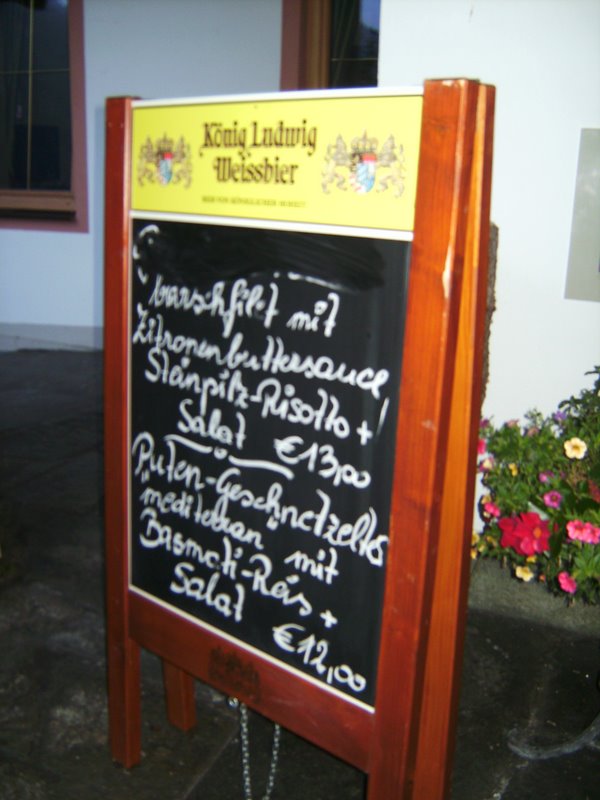 König Ludwig
Weissbier
BIER VON KÖNIGLICHER HOHEIT
barschfilet mit
Zitronenbuttersauce,
Steinpilz-Risotto +
Salat €13,00
Puten-Geschnetzeltes
"mediterran" mit
Basmati-Reis +
Salat
€12,00